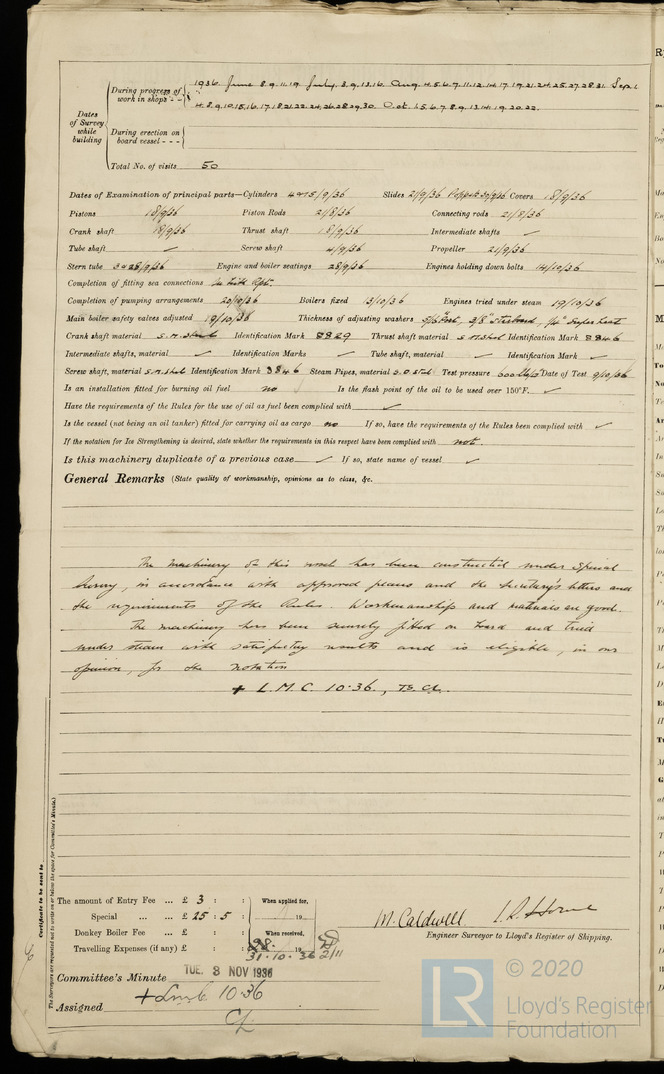 1936 June 8.9.11.19 July, 3.9.13.16. Aug. 4.5.6.7.11.12.14.17.19.21.24.25.27.28.31 Sep. 1
During progress of work in shops - -
4.8.9.10.15.16.17.18.21.22.24.26.28.29.30. Oct. 1.5.6.7.8.9.13.14.19.20.22.
Dates of Survey while building
During erection on board vessel - - -
Total No. of visits 50
Dates of Examination of principal parts—Cylinders 4 & 15/9/36 Slides 2/9/36 Covers 18/9/36
Pistons 18/9/36 Piston Rods 21/8/36 Connecting rods 21/8/36
Crank shaft 18/9/36 Thrust shaft 18/9/36 Intermediate shafts ✓
Tube shaft ✓ Screw shaft 4/9/36 Propeller 21/9/36
Stern tube 3 & 28/9/36 Engine and boiler seatings 28/9/36 Engines holding down bolts 14/10/36
Completion of fitting sea connections Sept.
Completion of pumping arrangements 20/10/36 Boilers fixed 13/10/36 Engines tried under steam 19/10/36
Main boiler safety valves adjusted 19/10/36 Thickness of adjusting washers 5/16" Port, 3/8" Starboard, 1/4" Superheat
Crank shaft material S.M. Steel Identification Mark 8829 Thrust shaft material S.M. Steel Identification Mark 8846
Intermediate shafts, material ✓ Identification Marks ✓ Tube shaft, material ✓ Identification Mark ✓
Screw shaft, material S.M. Steel Identification Mark 3846 Steam Pipes, material S.D. Steel Test pressure 600 lb/□" Date of Test 9/10/36
Is an installation fitted for burning oil fuel no Is the flash point of the oil to be used over 150°F. ✓
Have the requirements of the Rules for the use of oil as fuel been complied with ✓
Is the vessel (not being an oil tanker) fitted for carrying oil as cargo no If so, have the requirements of the Rules been complied with ✓
If the notation for Ice Strengthening is desired, state whether the requirements in this respect have been complied with not.
Is this machinery duplicate of a previous case ✓ If so, state name of vessel ✓
General Remarks (State quality of workmanship, opinions as to class, &c.
The machinery of this vessel has been constructed under special
survey, in accordance with approved plans and the Secretary's letters and
the requirements of the Rules. Workmanship and materials are good.
The machinery has been securely fitted on board and tried
under steam with satisfactory results and is eligible, in our
opinion, for the notation
+ L.M.C. 10·36, T.S. CL.
Certificate to be sent to
The Surveyors are requested not to write on or below the space for Committee's Minute.)
The amount of Entry Fee ... £ 3 : : When applied for,
Special ... ... £ 25 : 5 : 19
Donkey Boiler Fee ... £ : : When received,
Travelling Expenses (if any) £ : : 31·10·36 19 2/11
M. Caldwell
Engineer Surveyor to Lloyd's Register of Shipping.
Committee's Minute TUE. 3 NOV 1936
Assigned + Lmc 10·36
CL
© 2020
Lloyd's Register
Foundation
LR